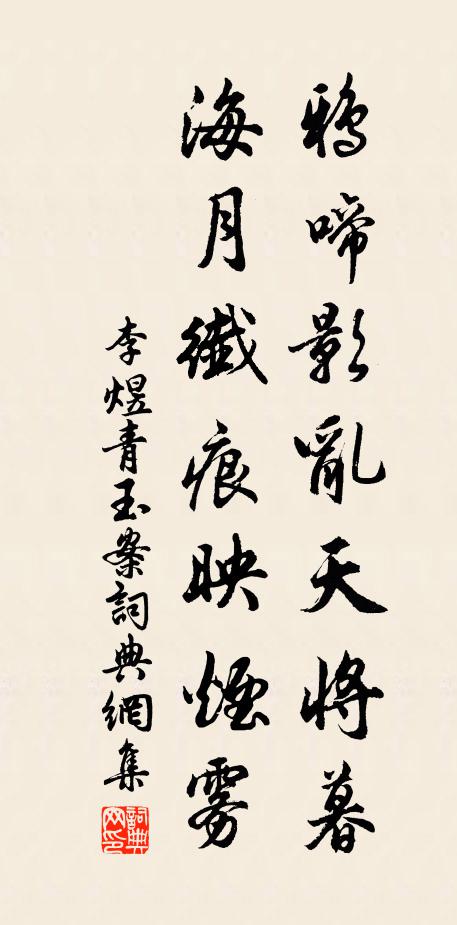 鴉啼影亂天將暮
海月纖痕映煙霧
李煜青玉案詞典網集
詞典網印